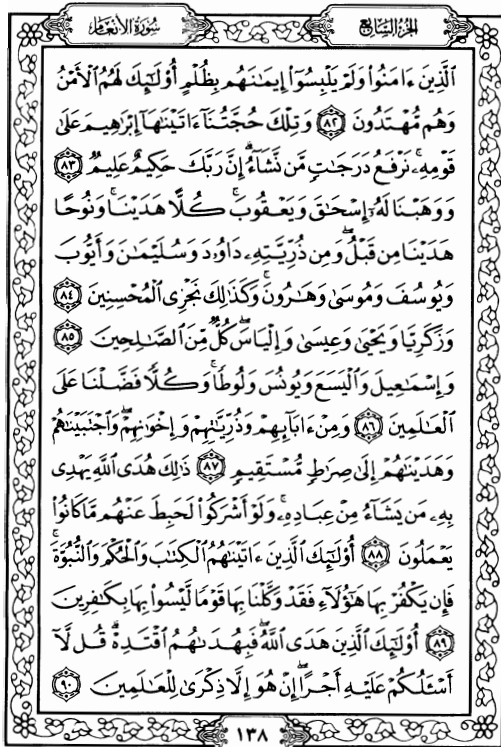 الجزء السابع
سورة الأنعام
الَّذِينَ ءَامَنُوا۟ وَلَمْ يَلْبِسُوٓا۟ إِيمَٰنَهُم بِظُلْمٍ أُو۟لَٰٓئِكَ لَهُمُ ٱلْأَمْنُ
وَهُم مُّهْتَدُونَ ٨٢ وَتِلْكَ حُجَّتُنَآ ءَاتَيْنَٰهَآ إِبْرَٰهِيمَ عَلَىٰ
قَوْمِهِۦ ۚ نَرْفَعُ دَرَجَٰتٍ مَّن نَّشَآءُ ۗ إِنَّ رَبَّكَ حَكِيمٌ عَلِيمٌ ٨٣
وَوَهَبْنَا لَهُۥٓ إِسْحَٰقَ وَيَعْقُوبَ ۚ كُلًّا هَدَيْنَا ۚ وَنُوحًا
هَدَيْنَا مِن قَبْلُ ۖ وَمِن ذُرِّيَّتِهِۦ دَاوُۥدَ وَسُلَيْمَٰنَ وَأَيُّوبَ
وَيُوسُفَ وَمُوسَىٰ وَهَٰرُونَ ۚ وَكَذَٰلِكَ نَجْزِى ٱلْمُحْسِنِينَ ٨٤
وَزَكَرِيَّا وَيَحْيَىٰ وَعِيسَىٰ وَإِلْيَاسَ ۖ كُلٌّ مِّنَ ٱلصَّٰلِحِينَ ٨٥
وَإِسْمَٰعِيلَ وَٱلْيَسَعَ وَيُونُسَ وَلُوطًا ۚ وَكُلًّا فَضَّلْنَا عَلَى
ٱلْعَٰلَمِينَ ٨٦ وَمِنْ ءَابَآئِهِمْ وَذُرِّيَّٰتِهِمْ وَإِخْوَٰنِهِمْ ۖ وَٱجْتَبَيْنَٰهُمْ
وَهَدَيْنَٰهُمْ إِلَىٰ صِرَٰطٍ مُّسْتَقِيمٍ ٨٧ ذَٰلِكَ هُدَى ٱللَّهِ يَهْدِى
بِهِۦ مَن يَشَآءُ مِنْ عِبَادِهِۦ ۚ وَلَوْ أَشْرَكُوا۟ لَحَبِطَ عَنْهُم مَّا كَانُوا۟
يَعْمَلُونَ ٨٨ أُو۟لَٰٓئِكَ ٱلَّذِينَ ءَاتَيْنَٰهُمُ ٱلْكِتَٰبَ وَٱلْحُكْمَ وَٱلنُّبُوَّةَ ۚ
فَإِن يَكْفُرْ بِهَا هَٰٓؤُلَآءِ فَقَدْ وَكَّلْنَا بِهَا قَوْمًا لَّيْسُوا۟ بِهَا بِكَٰفِرِينَ
٨٩ أُو۟لَٰٓئِكَ ٱلَّذِينَ هَدَى ٱللَّهُ ۖ فَبِهُدَىٰهُمُ ٱقْتَدِهْ ۗ قُل لَّآ
أَسْـَٔلُكُمْ عَلَيْهِ أَجْرًا ۖ إِنْ هُوَ إِلَّا ذِكْرَىٰ لِلْعَٰلَمِينَ ٩٠
١٣٨